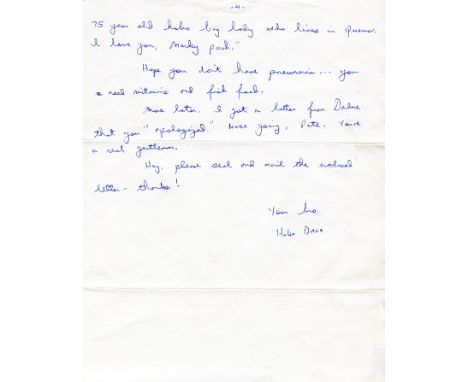 -4-
75 year old hobo bag lady who lives in Queens.
I love you, Marky pooh."
Hope you don't have pneumonia... you
need vitamins and fish food.
More later. I got a letter from Darlene
that you "apologized." Nice going, Pete. You're
a real gentleman.
Hey, please seal and mail the enclosed
letter - thanks!
Your bro.
Dave